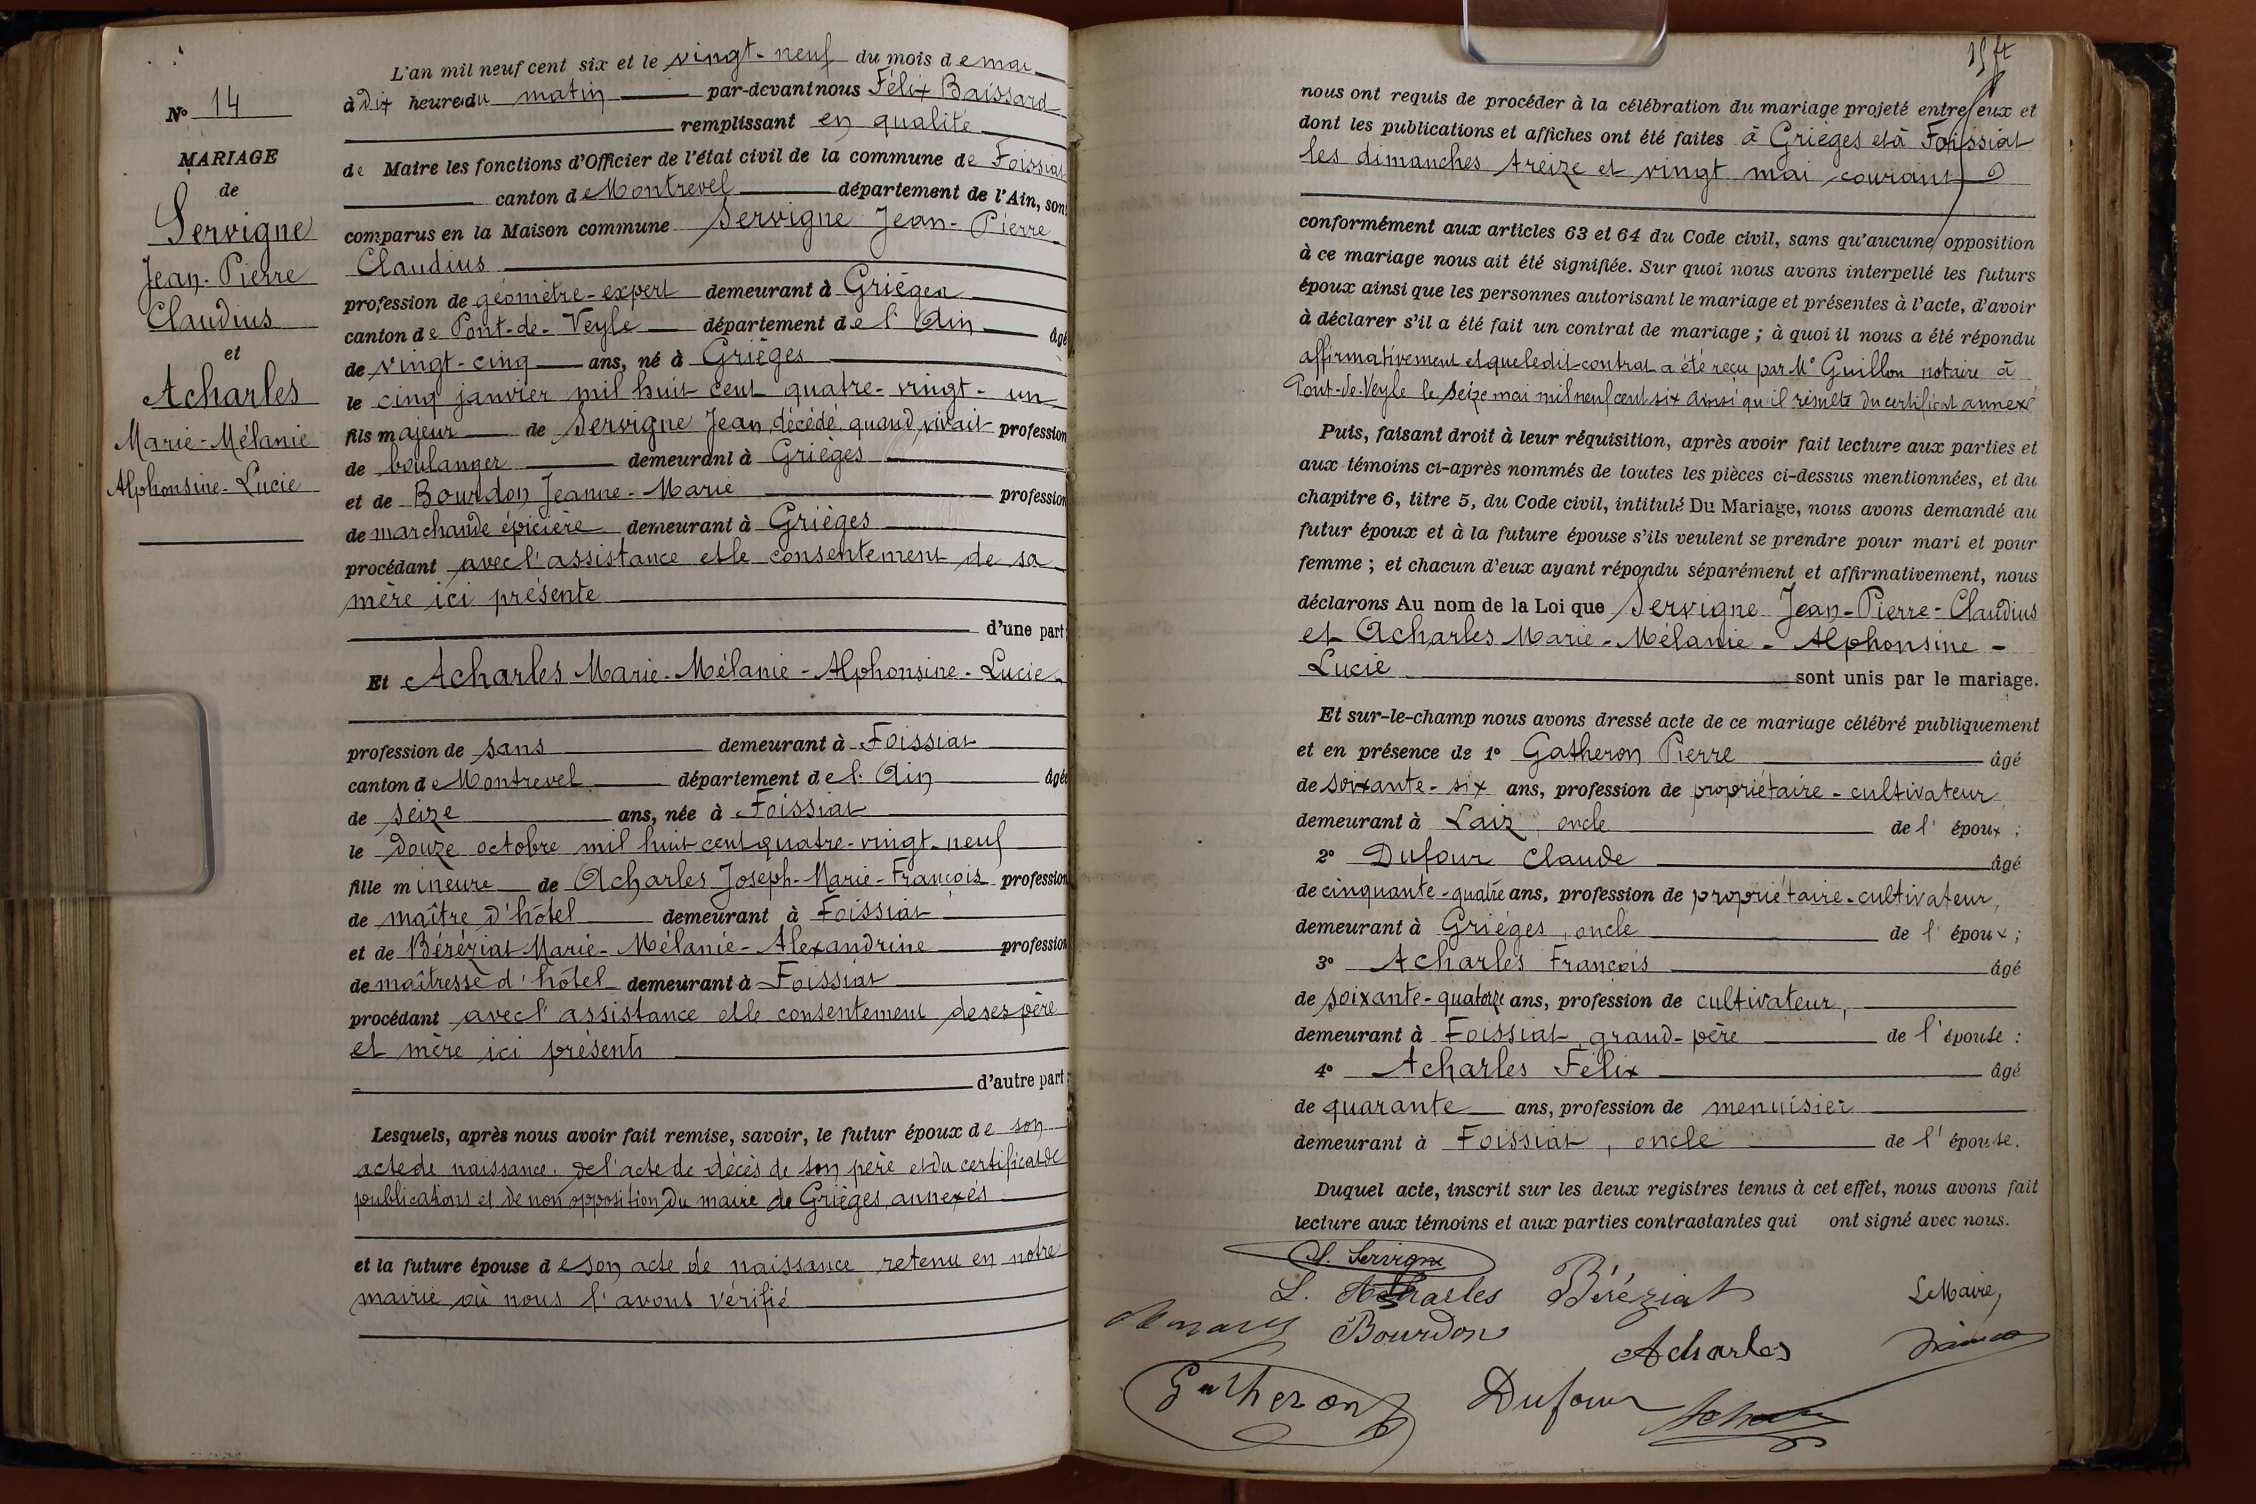 N° 14
MARIAGE
de
Servigne
Jean-Pierre
Claudius
et
Acharles
Marie-Mélanie
Alphonsine-Lucie
L'an mil neuf cent six et le vingt-neuf du mois de mai
à dix heures du matin par-devant nous Félix Baissard
remplissant en qualité
de Maire les fonctions d'Officier de l'état civil de la commune de Foissiat
canton de Montrevel département de l'Ain, sont
comparus en la Maison commune Servigne Jean-Pierre
Claudius
profession de géomètre-expert demeurant à Grièges
canton de Pont-de-Veyle département de l'Ain âgé
de vingt-cinq ans, né à Grièges
le cinq janvier mil huit cent quatre-vingt-un
fils majeur de Servigne Jean, décédé, quand vivait profession
de boulanger demeurant à Grièges
et de Bourdon Jeanne-Marie profession
de marchande épicière demeurant à Grièges
procédant avec l'assistance et le consentement de sa
mère ici présente
d'une part
Et Acharles Marie-Mélanie-Alphonsine-Lucie
profession de sans demeurant à Foissiat
canton de Montrevel département de l'Ain âgée
de seize ans, née à Foissiat
le douze octobre mil huit cent quatre-vingt-neuf
fille mineure de Acharles Joseph-Marie-François profession
de maître d'hôtel demeurant à Foissiat
et de Béréziat Marie-Mélanie-Alexandrine profession
de maîtresse d'hôtel demeurant à Foissiat
procédant avec l'assistance et le consentement de ses père
et mère ici présents
d'autre part
Lesquels, après nous avoir fait remise, savoir, le futur époux de son
acte de naissance, de l'acte de décès de son père et du certificat de
publications et de non opposition du maire de Grièges, annexés
et la future épouse de son acte de naissance retenu en notre
mairie où nous l'avons vérifié
nous ont requis de procéder à la célébration du mariage projeté entre eux et
dont les publications et affiches ont été faites à Grièges et à Foissiat
les dimanches treize et vingt mai courant
conformément aux articles 63 et 64 du Code civil, sans qu'aucune opposition
à ce mariage nous ait été signifiée. Sur quoi nous avons interpellé les futurs
époux ainsi que les personnes autorisant le mariage et présentes à l'acte, d'avoir
à déclarer s'il a été fait un contrat de mariage ; à quoi il nous a été répondu
affirmativement et que ledit contrat a été reçu par Me Guillon notaire à
Pont-de-Veyle le seize mai mil neuf cent six ainsi qu'il résulte du certificat annexé
Puis, faisant droit à leur réquisition, après avoir fait lecture aux parties et
aux témoins ci-après nommés de toutes les pièces ci-dessus mentionnées, et du
chapitre 6, titre 5, du Code civil, intitulé Du Mariage, nous avons demandé au
futur époux et à la future épouse s'ils veulent se prendre pour mari et pour
femme ; et chacun d'eux ayant répondu séparément et affirmativement, nous
déclarons Au nom de la Loi que Servigne Jean-Pierre-Claudius
et Acharles Marie-Mélanie-Alphonsine-
Lucie sont unis par le mariage.
Et sur-le-champ nous avons dressé acte de ce mariage célébré publiquement
et en présence de 1° Gatheron Pierre âgé
de soixante-six ans, profession de propriétaire-cultivateur,
demeurant à Laiz, oncle de l'époux ;
2° Dufour Claude âgé
de cinquante-quatre ans, profession de propriétaire-cultivateur,
demeurant à Grièges, oncle de l'époux ;
3° Acharles François âgé
de soixante-quatorze ans, profession de cultivateur,
demeurant à Foissiat, grand-père de l'épouse :
4° Acharles Félix âgé
de quarante ans, profession de menuisier
demeurant à Foissiat, oncle de l'épouse.
Duquel acte, inscrit sur les deux registres tenus à cet effet, nous avons fait
lecture aux témoins et aux parties contractantes qui ont signé avec nous.
Cl. Servigne
L. Acharles Béréziat Le Maire,
Bourdon
Acharles
Gatheron Dufour